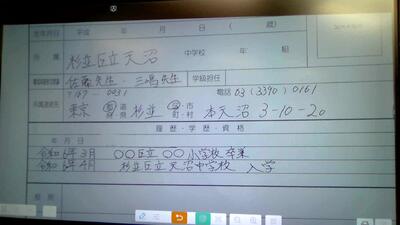 生年月日 平成 年 月 日 ( 歳)
所属 杉並区立天沼 中学校 年 組
佐藤先生・三嶋先生 学級担任
電話 03 (3390) 0161
東京 都 道 府 県 杉並 区・市 町・村 本天沼 3-10-20
履歴・学歴・資格
年 月 日
令和6年3月 〇〇区立〇〇小学校 卒業
令和6年4月 杉並区立天沼中学校 入学